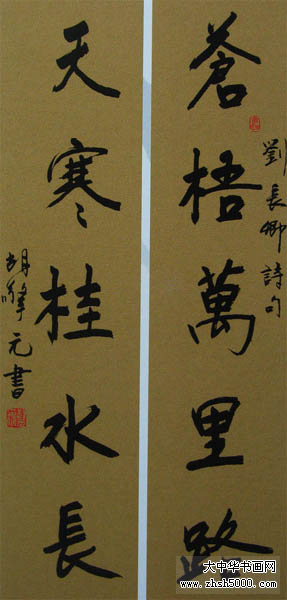 蒼梧萬里路
劉長卿詩句
天寒桂水長
元書
大中华书画网
www.zhsh5000.com